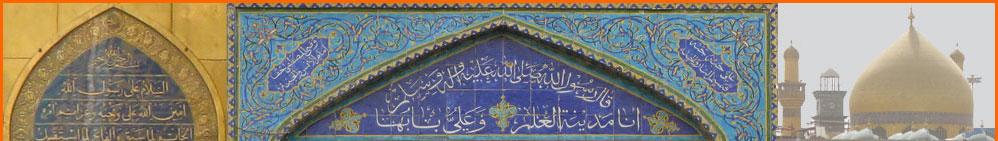 السلام على رسول الله
امين الله على وحيه وعزائم امره
الخاتم لما سبق والفاتح لما استقبل
قال رسول الله صلى الله عليه واله وسلم
انا مدينة العلم وعلي بابها